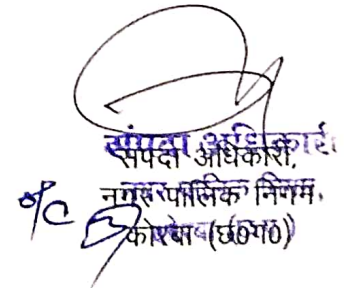 संपदा अधिकारी,
नगर पालिक निगम,
o/c कोरबा (छ0ग0)